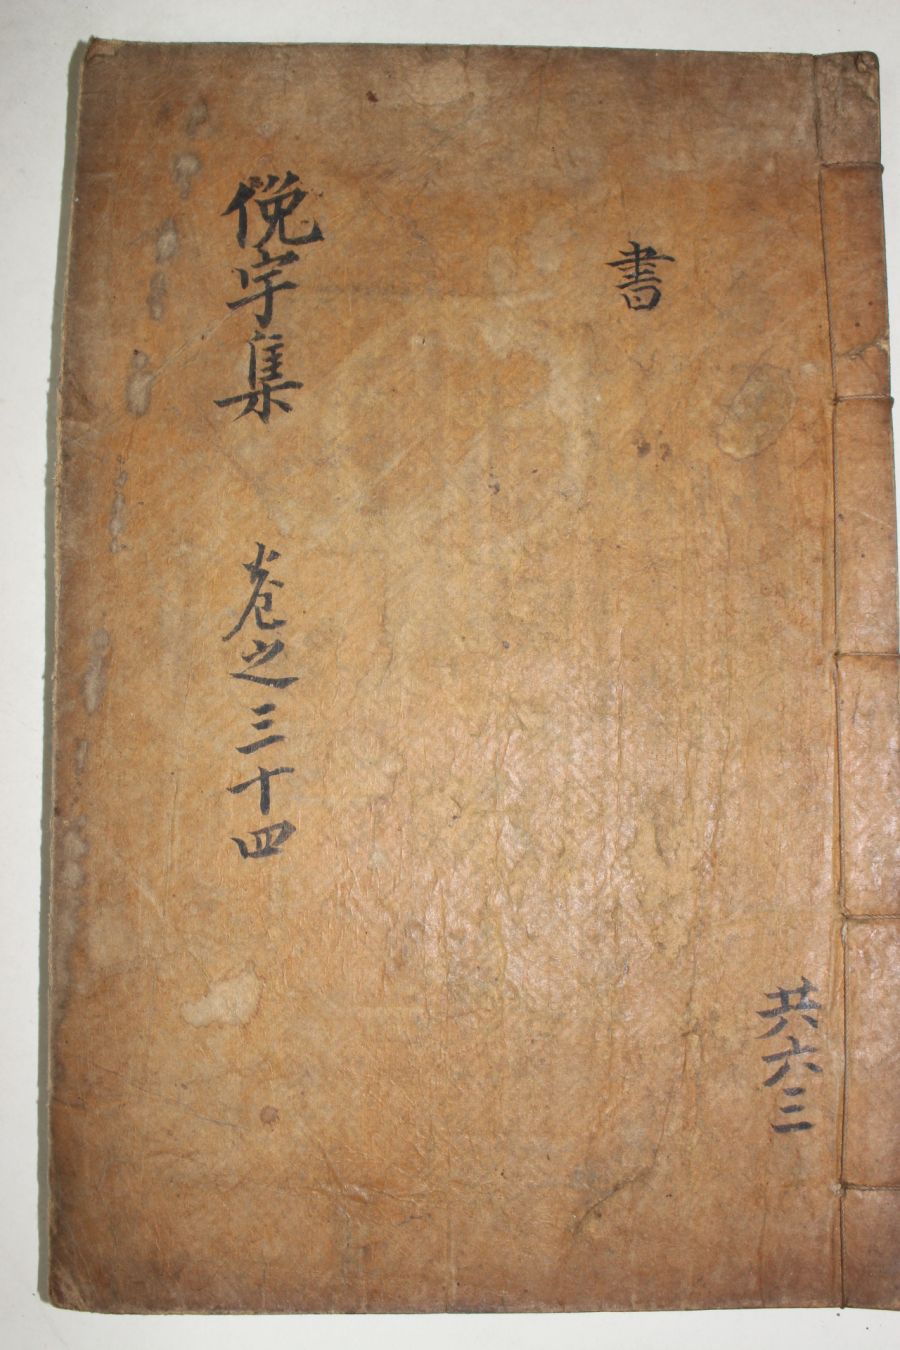 共六三
書
俛宇集 卷之三十四